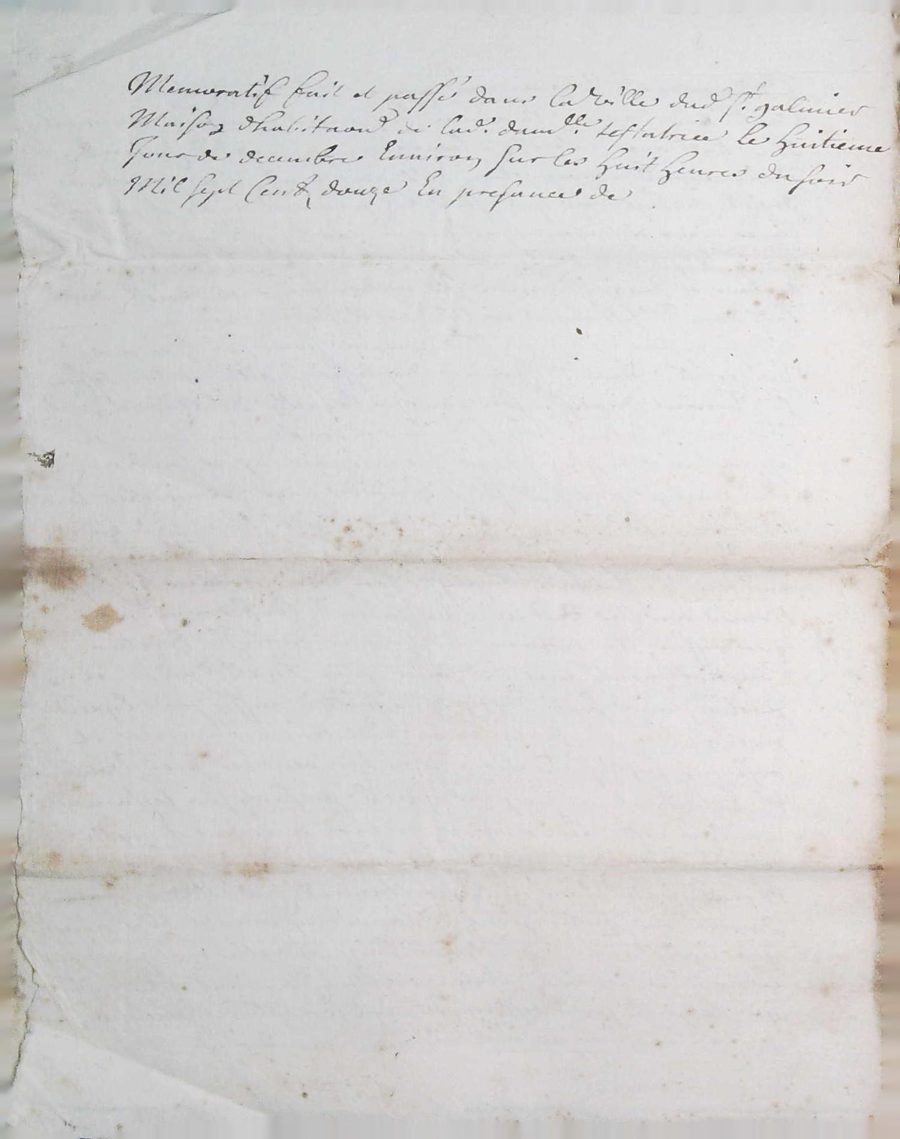 Memoratif fait et passé dans la ville dud st galmier
Maison dhabitaon de lad. damlle testatrice le huitieme
Jour de decembre Environ sur les huit heures du soir
Mil sept Cent douze En presance de